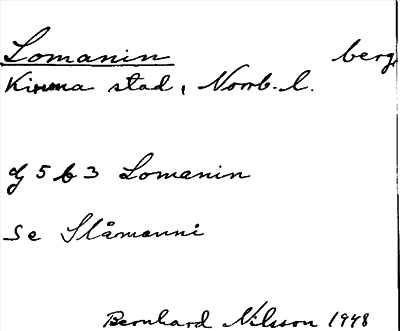 Lomanin berg
Kiruna stad, Norrb. l.
dj 5 b 3 Lomanin
Se Slåmanni
Bernhard Nilsson 1948